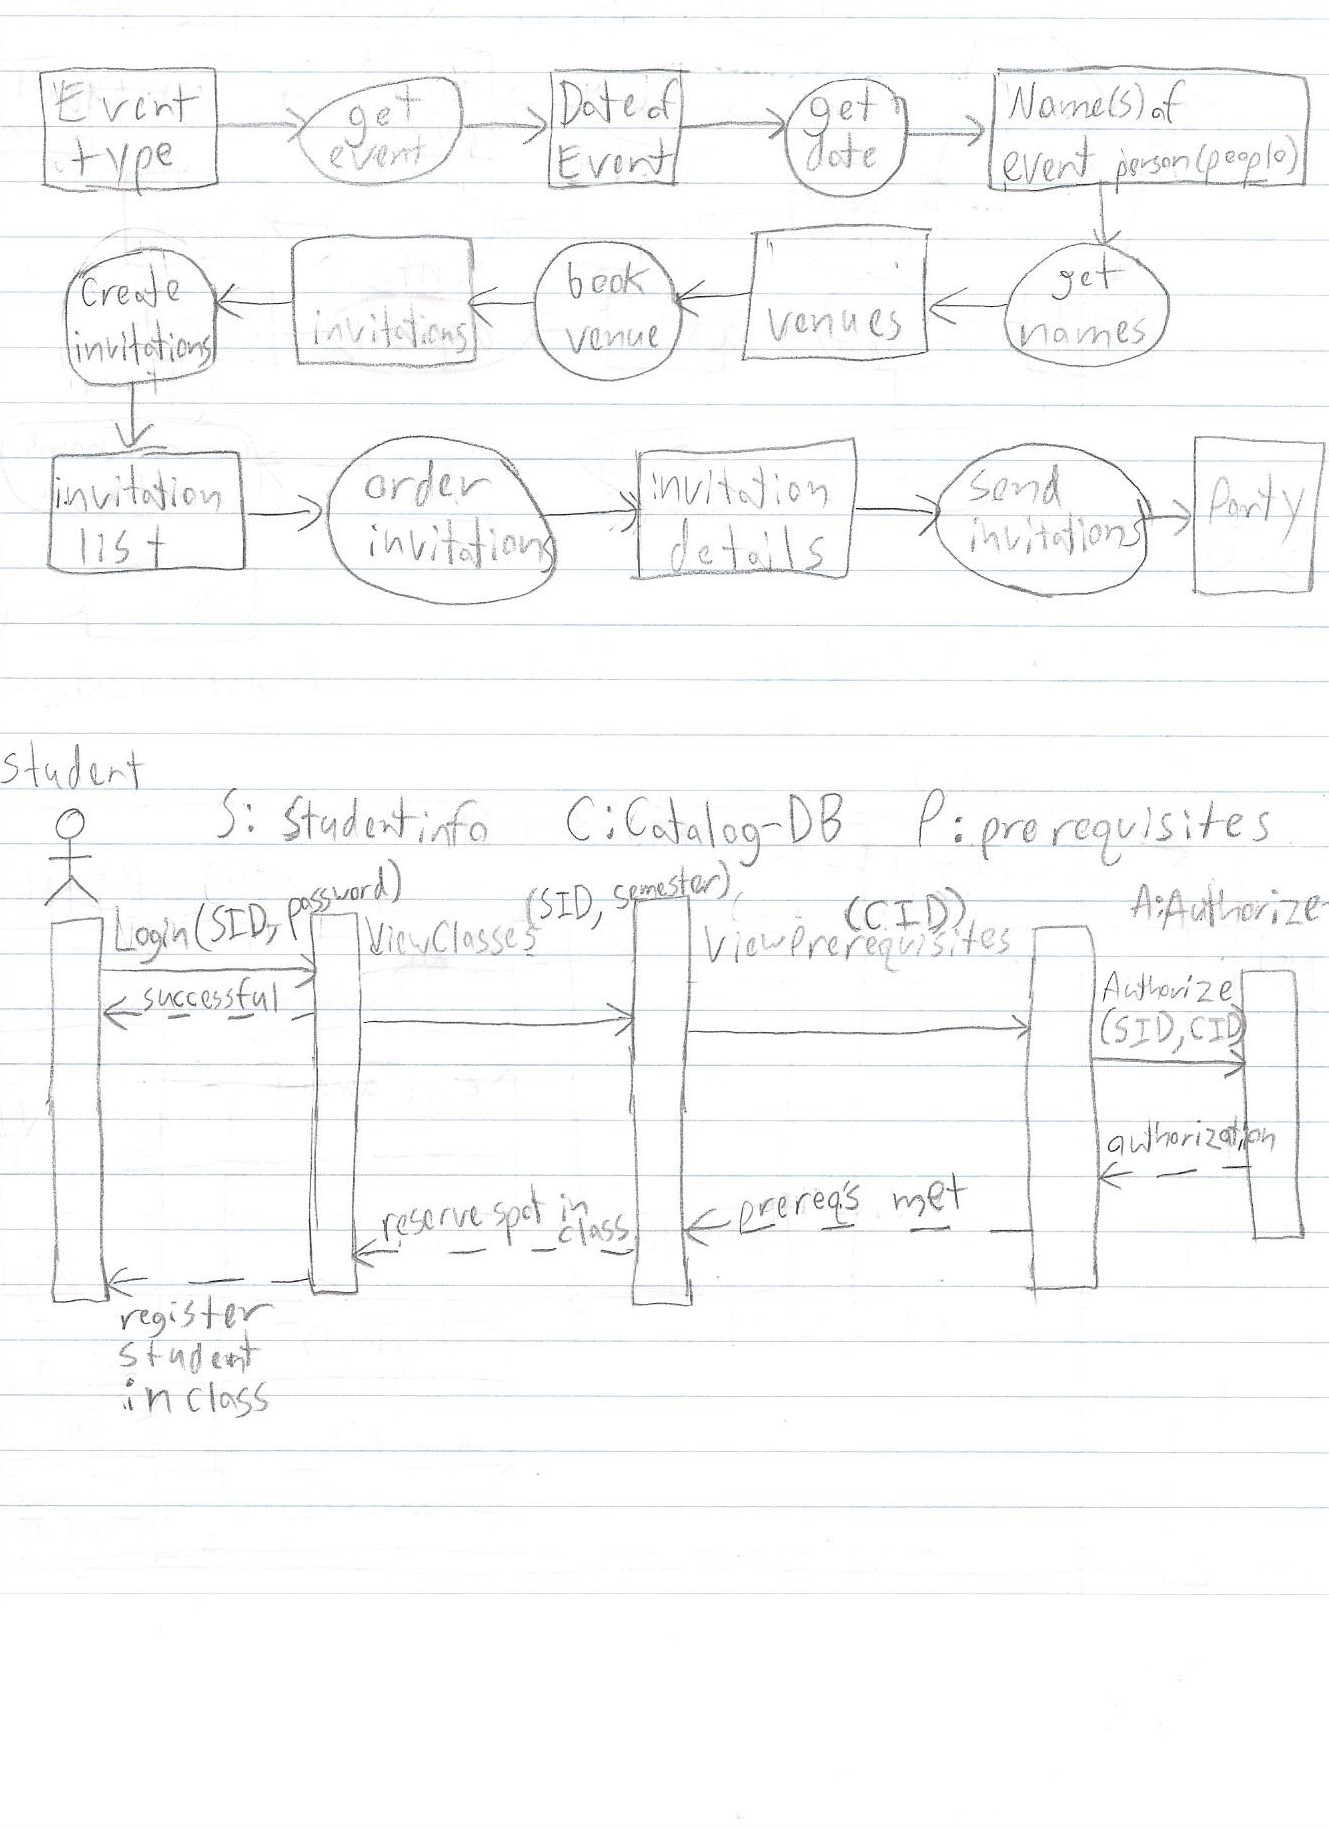 Event
type
get
event
Date of
Event
get
date
Name(s) of
event person(people)
get
names
venues
book
venue
invitations
Create
invitations
invitation
list
order
invitations
invitation
details
send
invitations
Party
Student
S: Studentinfo
C:Catalog-DB
P:prerequisites
A:Authorize
Login(SID, password)
successful
ViewClasses
(SID, semester)
ViewPrerequisites
(CID)
Authorize
(SID,CID)
authorization
prereq's met
reserve spot in
class
register
student
in class